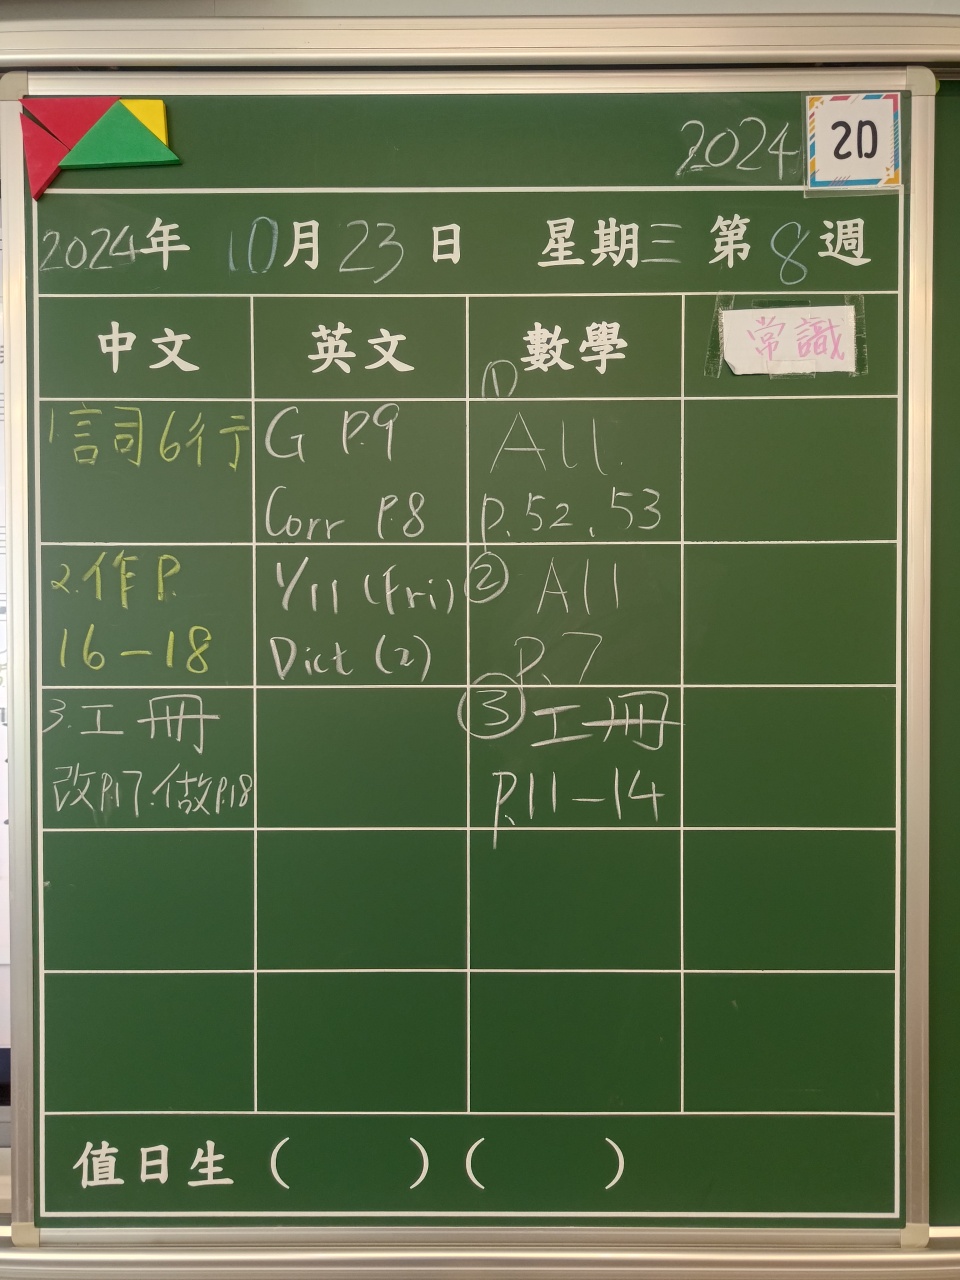 2024 2D
2024年 10月23日 星期三 第8週
中文 英文 數學 常識
1.言司6行
G P.9
Corr P.8
① All
P.52,53
2.作P.
16-18
Y11 (Fri)
Dict (2)
② All
P.7
3.工冊
改P.17.做P.18
③ 工冊
P.11-14
值日生 ( ) ( )